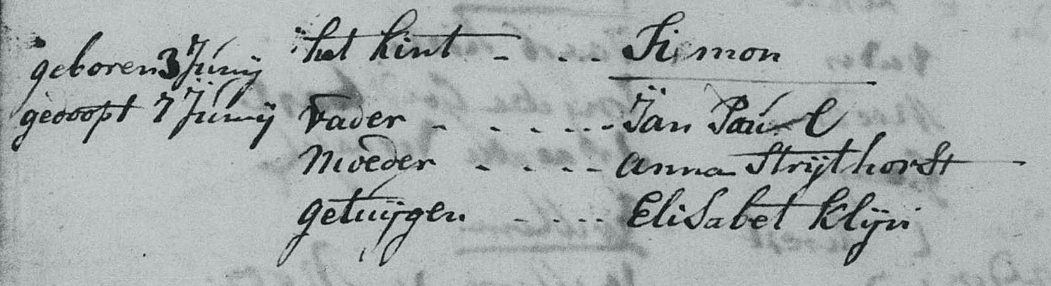 geboren 3 Junij het kint - - - Simon
gedoopt 7 Junij Vader - - - - - - Jan Paul
Moeder - - - - Anna Strijthorst
getuijgen - - - - Elisabet Klijn